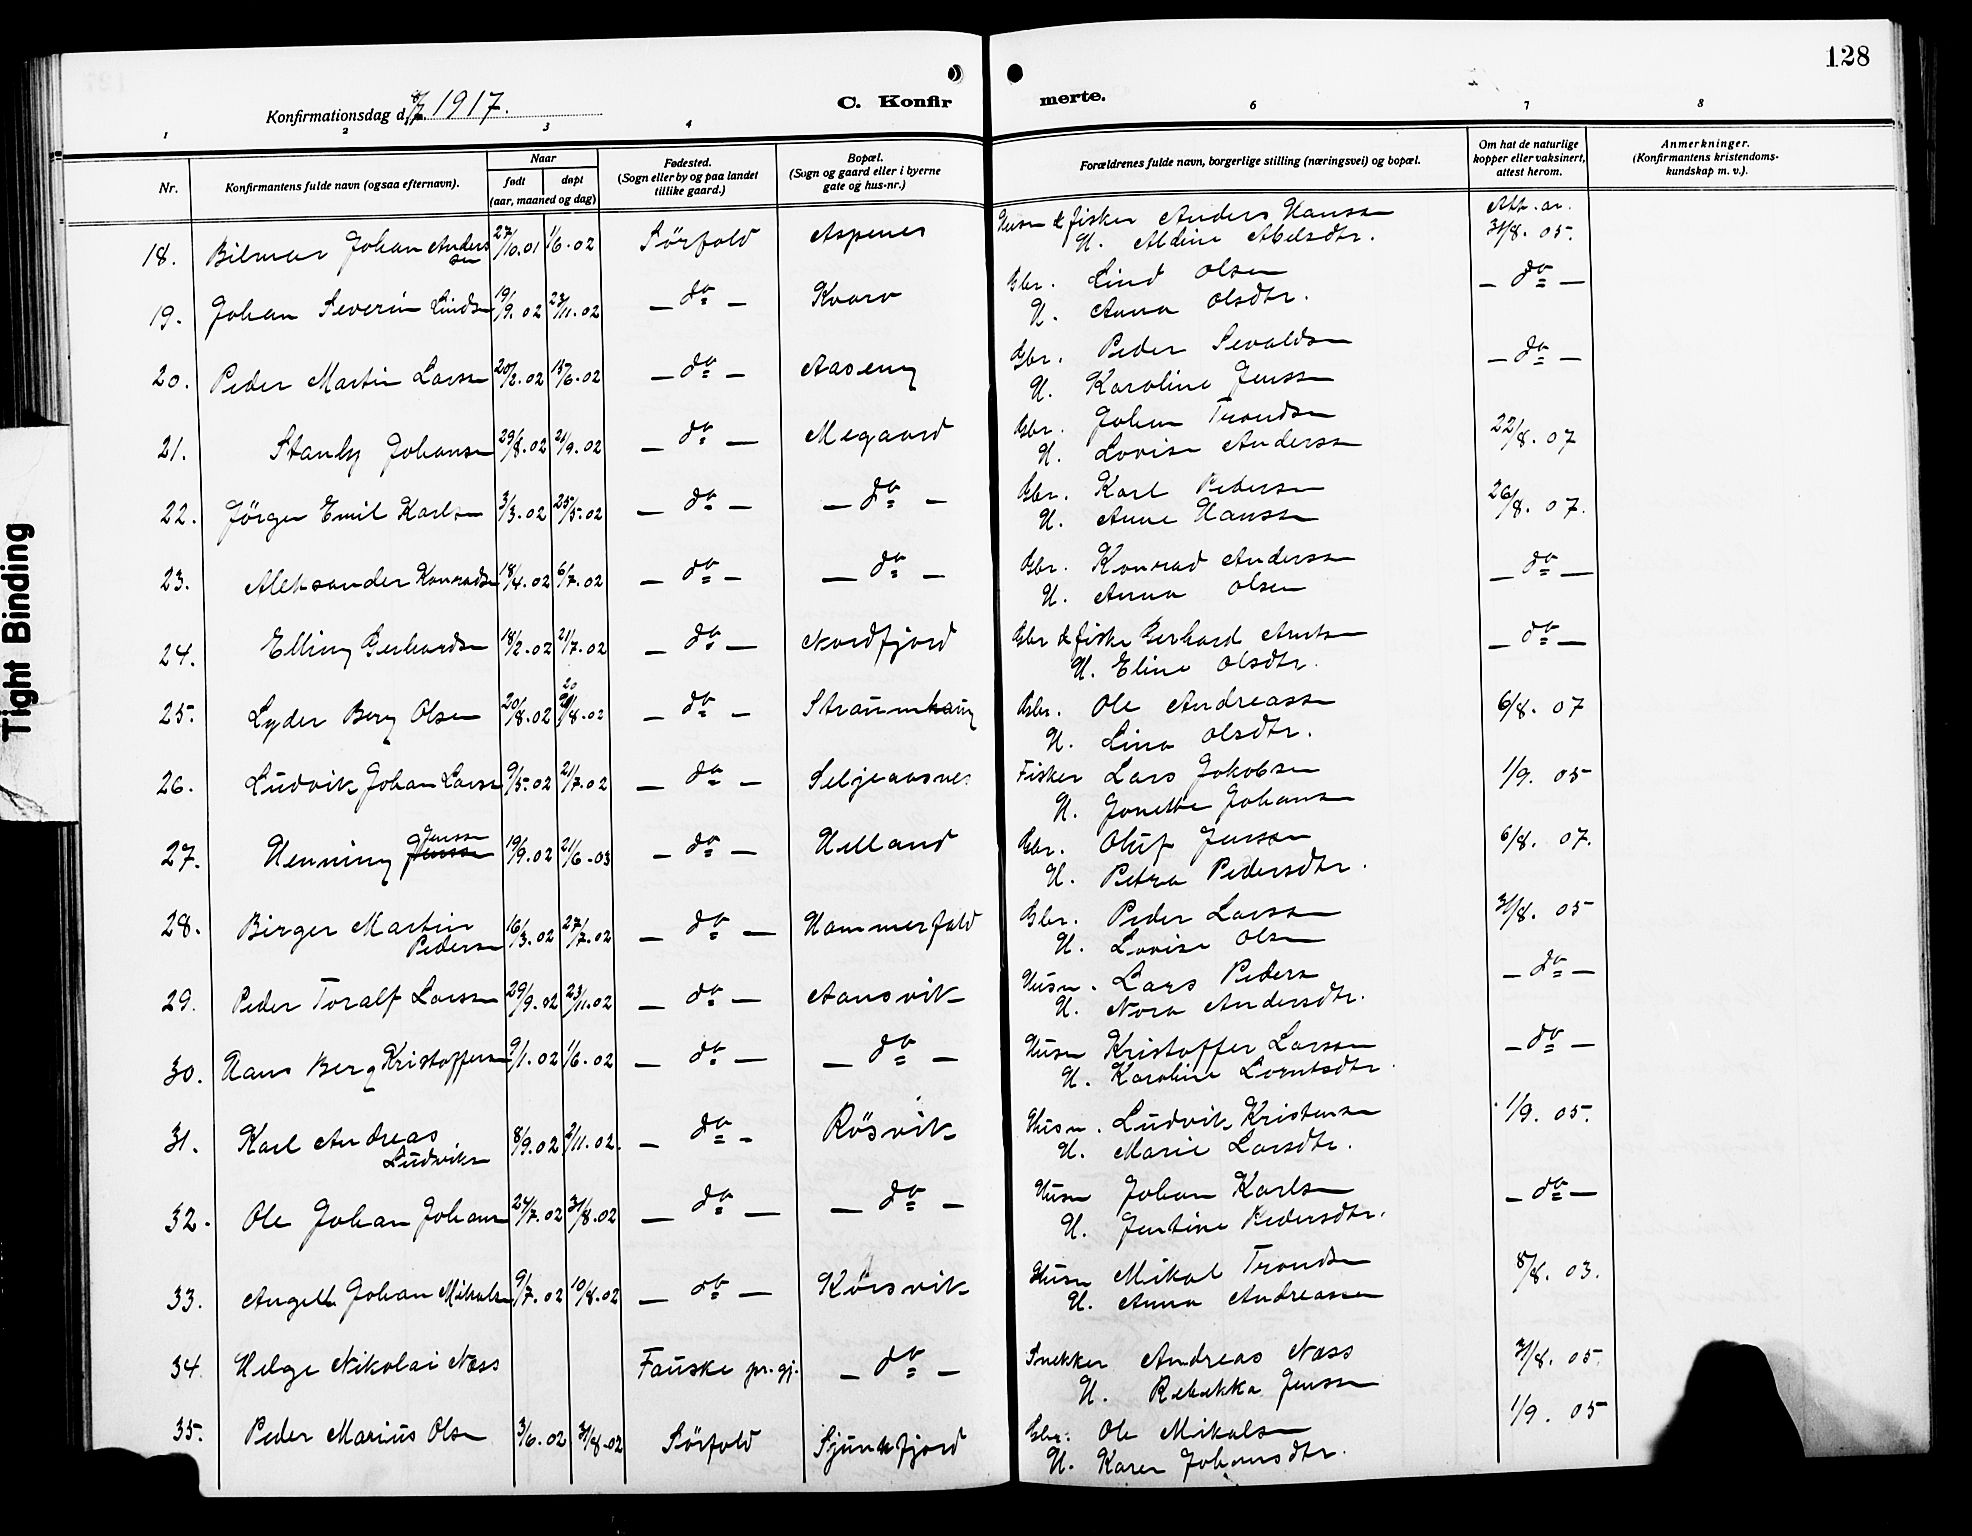 128
Konfirmationsdag d. 8/7 1917.
C. Konfir
merte.
1 2 3 4 6 7 8
Nr.
Konfirmantens fulde navn (ogsaa efternavn).
Naar
født
døpt
(aar, maaned og dag)
Fødested.
(Sogn eller by og paa landet
tillike gaard.)
Bopæl.
(Sogn og gaard eller i byerne
gate og hus-nr.)
Forældrenes fulde navn, borgerlige stilling (næringsvei) og bopæl.
Om hat de naturlige
kopper eller vaksinert,
attest herom.
Anmerkninger.
(Konfirmantens kristendoms-
kundskap m. v.).
18. Bilmar Johan Anders
sen 27/10.01 1/6.02 Sörfold Aspenes Husm & fisker Anders Hanssen Att. av.
H. Aldine Abelsdtr. 31/8. 05.
19. Johan Severin Lindsen 19/9.02 23/11.02 — do — Kvarv Gbr. Lind Olsen — do —
H. Anna Olsdtr.
20. Peder Martin Larsen 20/2.02 15/6.02 — do — Aaseng Gbr. Peder Sevaldsen — do —
H. Karoline Jenssen
21. Stanley Johansen 29/8.02 21/9.02 — do — Megaard Gbr. Johan Trondsen 22/8. 07
H. Lovise Anderssen
22. Jörgen Emil Karlsen 3/3.02 25/5.02 — do — — do — Gbr. Karl Pedersen 26/8. 07.
H. Anne Hanssen
23. Aleksander Konradsen 18/4.02 6/7.02 — do — — do — Gbr. Konrad Anderssen — do —
H. Anna Olsen
24. Elling Gerhardsen 18/2.02 21/7.02 — do — Nordfjord Gbr & fisker Gerhard Arntsen — do —
H. Eline Olsdtr.
25. Lyder Berg Olsen 20/8.02 20/8.02 — do — Straumhaug Gbr. Ole Andreassen 6/8. 07
H. Lina Olsdtr.
26. Ludvik Johan Larsen 9/5.02 21/7.02 — do — Seljeaasnes Fisker Lars Jakobsen 1/9. 05
H. Jonette Johansen
27. Henning Jenssen 19/9.02 21/6.03 — do — Helland Gbr. Oluf Jenssen 6/8. 07.
H. Petra Pedersdtr.
28. Birger Martin
Pedersen 16/3.02 27/7.02 — do — Hammerfald Gbr. Peder Larssen 31/8. 05
H. Lovise Olsen
29. Peder Toralf Larssen 29/9.02 23/11.02 — do — Aansvik Husm. Lars Peders — do —
H. Nora Andersdtr.
30. Hans Berg Kristoffersen 9/1.02 1/6.02 — do — — do — Husm Kristoffer Larssen — do —
H. Karoline Lorntsdtr.
31. Karl Andreas
Ludviksen 8/9.02 2/11.02. — do — Rösvik Husm. Ludvik Kristensen 1/9. 05.
H. Marie Larsdtr.
32. Ole Johan Johansen 24/7.02 31/8.02 — do — — do — Husm Johan Karlsen — do —
H. Jentine Pedersdtr.
33. Angell Johan Mikalsen 9/7.02 10/8.02 — do — Körsvik Husm Mikal Trondsen 8/8. 03.
H. Anna Andreassen
34. Helge Nikolai Næss Fauske pr. gj. — do — Snekker Andreas Næss 31/8. 05.
H. Rebekka Jenssen
35. Peder Marius Olsen 3/6.02 31/8.02 Sörfold Sjunkfjord Gbr. Ole Mikalsen 1/9. 05
H. Karen Johansdtr.
Tight Binding